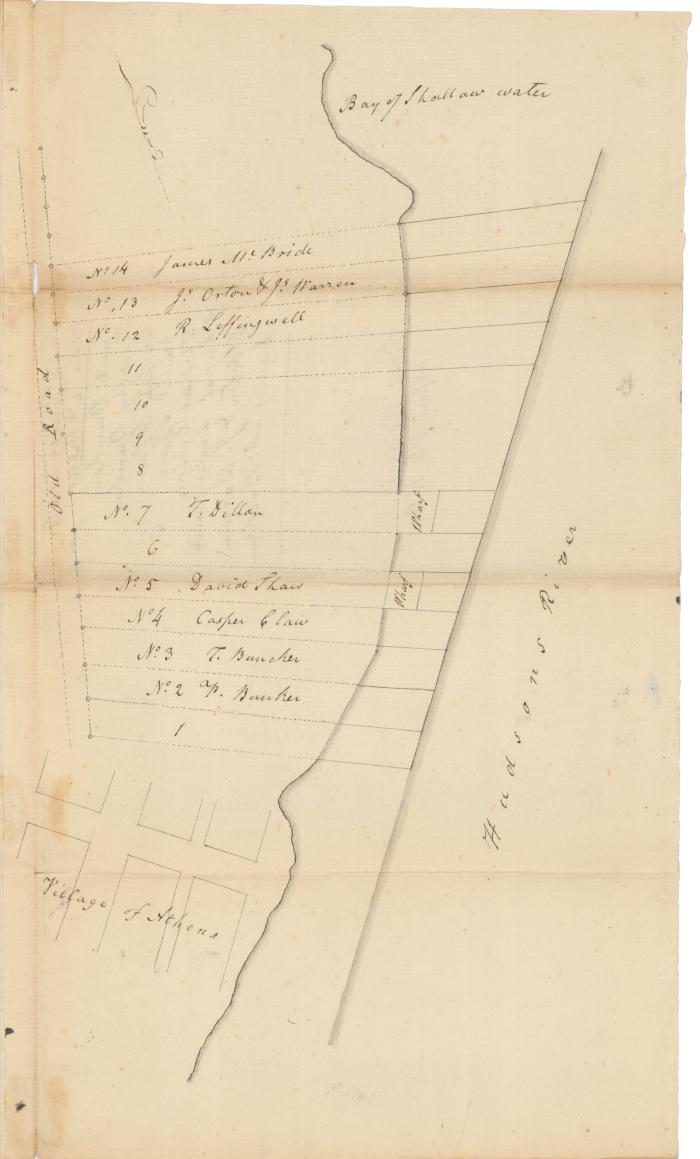 Bay of Shallaw water
No. 14 James Mc Bride
No. 13 Js Orton & Js Warren
No. 12 R. Leffingwell
11
10
9
8
Old Road
No. 7 T. Dillon
Wharf
6
No. 5 David Shaw
Wharf
No 4 Casper Claw
No 3 T. Buncker
No 2 P. Bunker
1
Hudsons River
Village of Athens